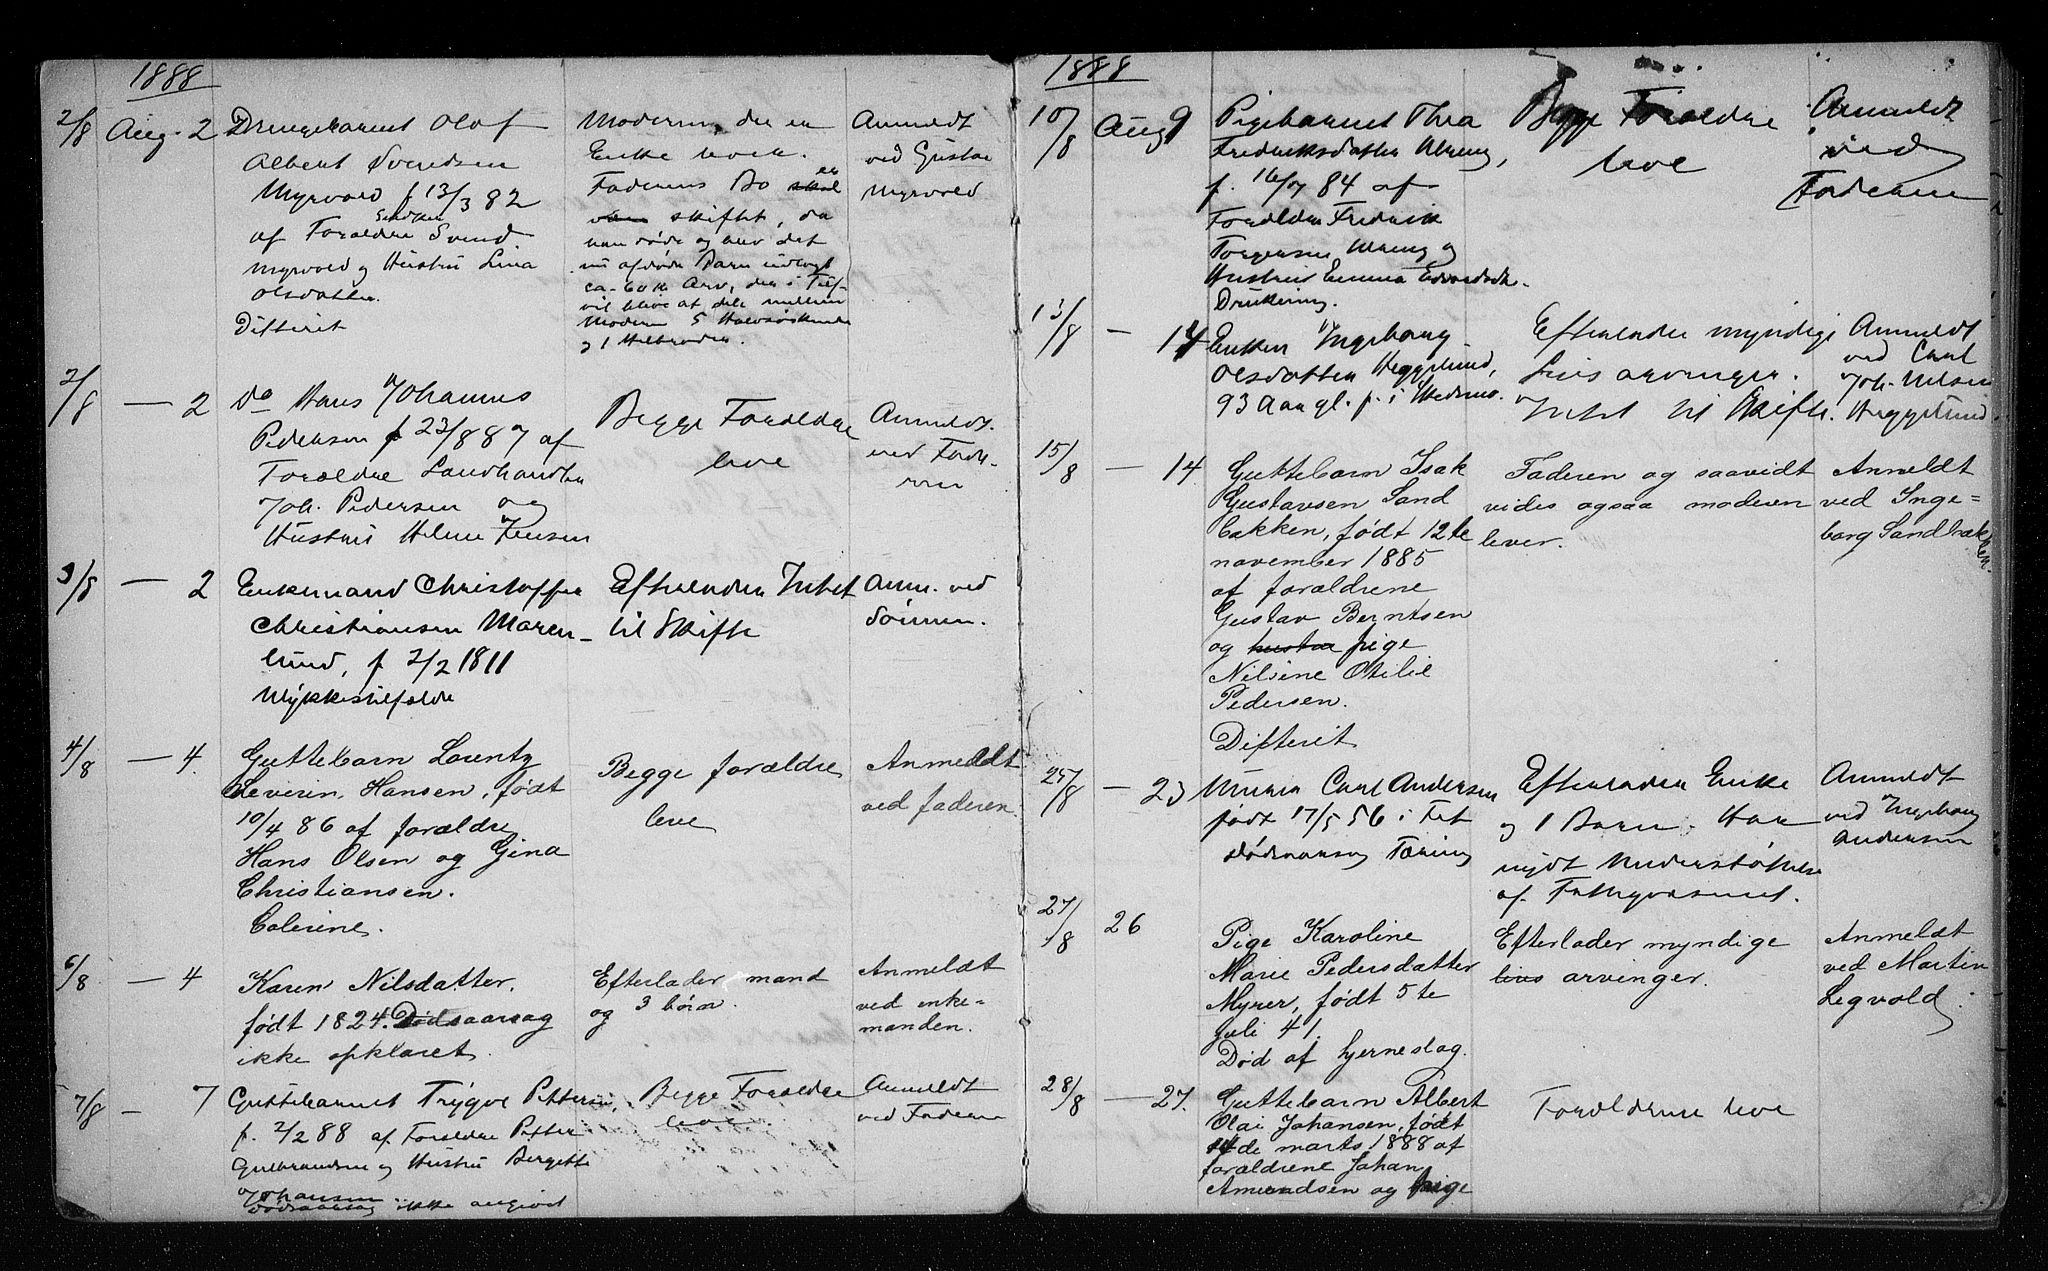 1888
2/8 Aug. 2 Drengebarnet Olaf
Albert Svendsen
Myrvold f 13/3 82
af Forældre Svend
Myrvold og Hustru Lina
Olsdatter.
Difterit
Moderen, der er
Enke lever.
Faderens Bo er
skiftet, da
han døde og blev det
nu afdøde Barn udlagt
ca. 60 kr Arv, der i Tilf-
vil blive at dele mellem
Moderen 5 Halvsøskende
og 1 Helbroder.
Anmeldt
ved Gustav
Myrvold
2/8 — 2 Do Hans Johannes
Pedersen f 23/8 87 af
Forældre Landhandler
Joh. Pedersen og
Hustru Helene Jensen
Begge Forældre
leve
Anmeldt
ved Fade-
ren
3/8 — 2 Enkemand Christoffer
Christiansen Maren-
lund, f 2/2 1811
Ulykkestilfælde
Efterlader Intet
til Skifte
Anm. ved
Sønnen.
4/8 — 4. Guttebarn Lorentz
Severin Hansen, født
10/4 86 af forældre
Hans Olsen og Gina
Christiansen.
Colerine.
Begge forældre
leve
Anmeldt
ved faderen.
6/8 — 4 Karen Nilsdatter,
født 1824. Dødsaarsag
ikke opklaret.
Efterlader mand
og 3 børn.
Anmeldt
ved enke=
manden.
7/8 — 7 Guttebarnet Trygve Pettersen,
f. 2/2 88 af Forældre Petter
Gulbrandsen og Hustru Bergette
Johansen
Dødsaarsag ikke angivet
Begge Forældre
leve.
Anmeldt
ved Faderen
1888
10/8 Aug 9 Pigebarnet Thea
Fredriksdatter Ulreng,
f. 16/7 84 af
Forældre Fredrik
Torgersen Ulreng og
Hustru Emma Edvardsdr.
Drukning.
Begge Forældre
leve
Anmeldt
ved
Faderen
13/8 — 12 Enken Ingeborg
Olsdatter Heggelund,
93 Aar gl. f. i Hedemo.
Efterlader myndige
Livsarvinger.
Intet til Skifte.
Anmeldt
ved Carl
Joh. Nilsen
Heggelund.
15/8 — 14 Guttebarn Isak
Gustavsen Sand
bakken, født 12te
november 1885
af forældrene
Gustav Berntsen
og hustru pige
Nilsine Otilie
Pedersen.
Difterit
Faderen og saavidt
vides ogsaa moderen
lever.
Anmeldt
ved Inge=
borg Sandbak
ken.
25/8 — 23 Murer Carl Andersen
født 17/5 56 i Fet
Dødsaarsag Tæring
Efterlader Enke
og 1 Barn. Har
nydt Understøttelse
af Fattigvæsenet.
Anmeldt
ved Ingeborg
Andersen
27/8 26 Pige Karoline
Marie Pedersdatter
Myrer, født 5te
Juli 41.
Død af hjerneslag.
Efterlader myndige
livs arvinger.
Anmeldt
ved Martin
Legvold.
28/8 — 27. Guttebarn Albert
Olai Johansen, født
14de marts 1888 af
forældrene Johan
Amundsen og pige
Forældrene leve